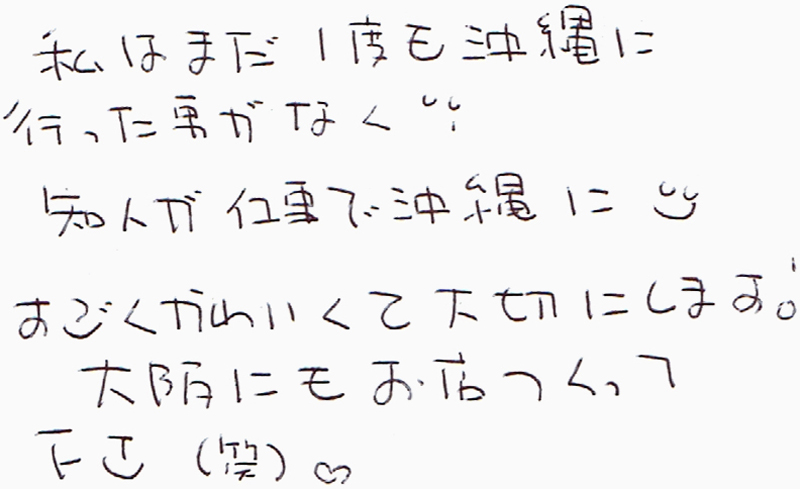 私はまだ1度も沖縄に
行った事がなく
知人が仕事で沖縄に
すごくかわいくて大切にします。!
大阪にもお店つくって
下さい(笑)♡